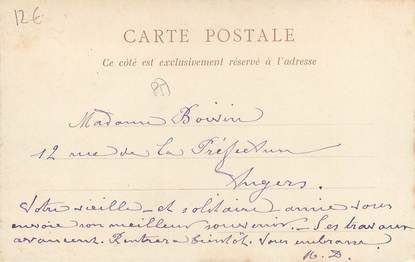 12€
CARTE POSTALE
Ce côté est exclusivement réservé à l'adresse
Madame Boivin
12 rue de la Préfecture
Angers.
Votre vieille – et solitaire amie vous
envoie son meilleur souvenir. – Les travaux
avancent. Rentrerai bientôt. Vous embrasse.